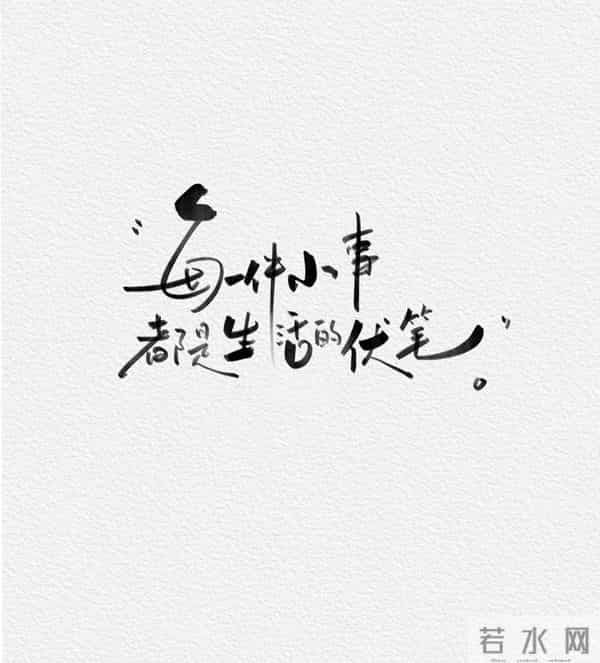 “每一件小事
都是生活的伏笔”。
若水网